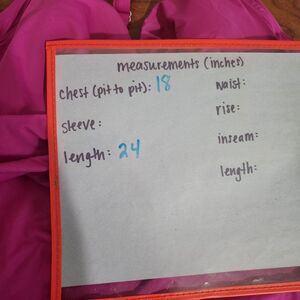 measurements (inches)
chest (pit to pit): 18
sleeve:
length: 24
waist:
rise:
inseam:
length: